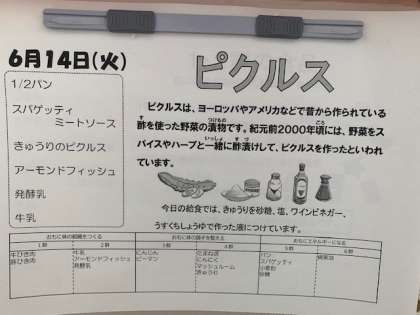 6月14日(火)
1/2パン
スパゲッティ
ミートソース
きゅうりのピクルス
アーモンドフィッシュ
発酵乳
牛乳
ピクルス
ピクルスは、ヨーロッパやアメリカなどで昔から作られている
酢を使った野菜の漬物です。紀元前2000年頃には、野菜をス
パイスやハーブと一緒に酢漬けして、ピクルスを作ったといわれ
ています。
今日の給食では、きゅうりを砂糖、塩、ワインビネガー、
うすくちしょうゆで作った液につけています。
おもに体の組織をつくる
おもに体の調子を整える
おもにエネルギーになる
1群 2群 3群 4群 5群 6群
牛ひき肉
豚ひき肉
牛乳
アーモンドフィッシュ
発酵乳
にんじん
ピーマン
たまねぎ
にんにく
マッシュルーム
きゅうり
パン
スパゲティ
小麦粉
砂糖